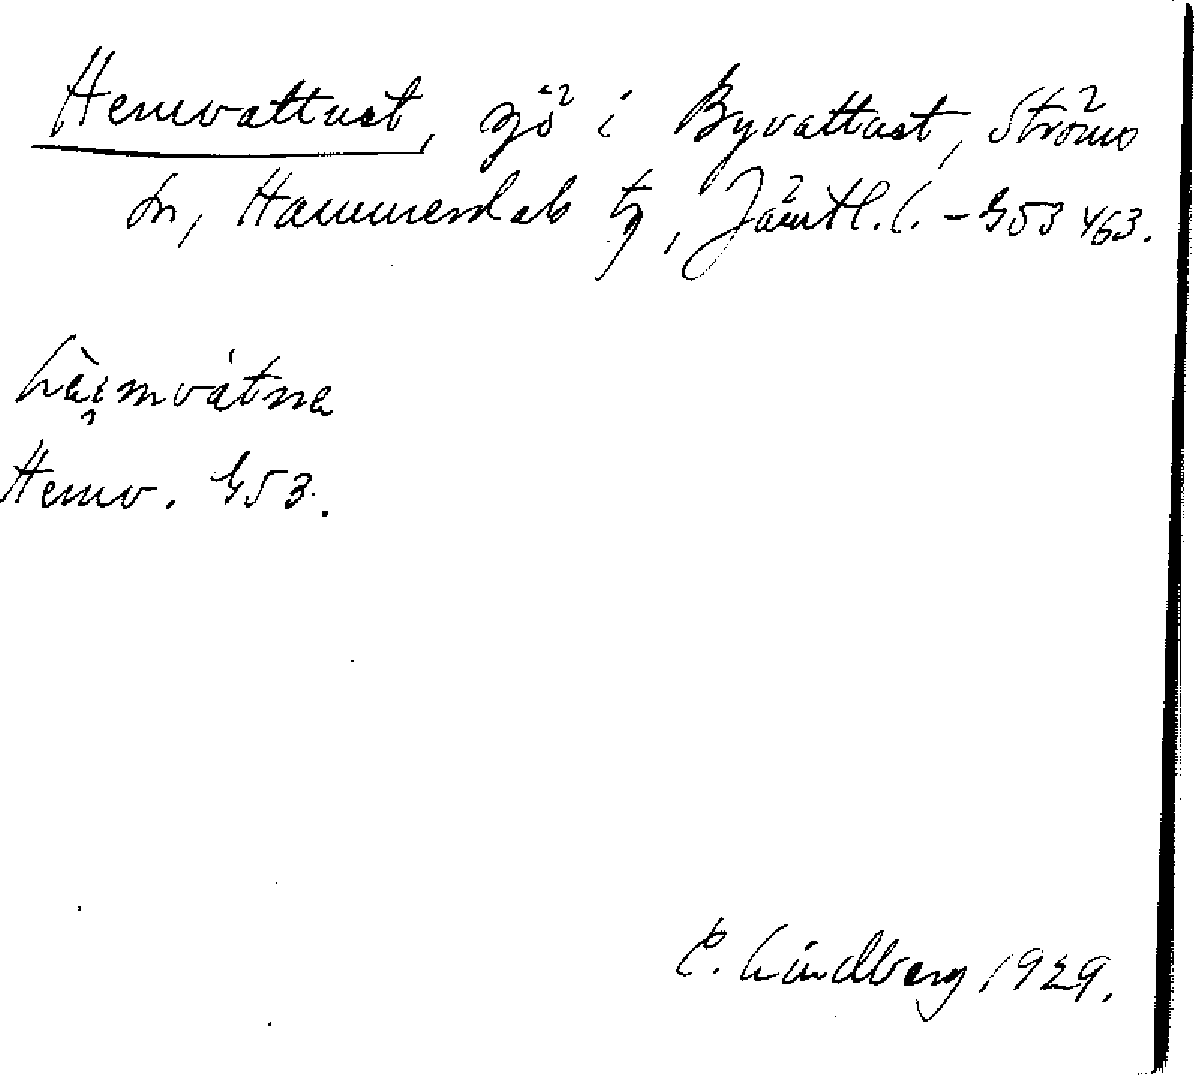 Hemvattnet, sjö i Byvattnet, Ströms
sn, Hammerdals tg, Jämtl. l. – G53 463.
hæ̀imvátnə
Hemv. G53.
E. Lindberg 1929.